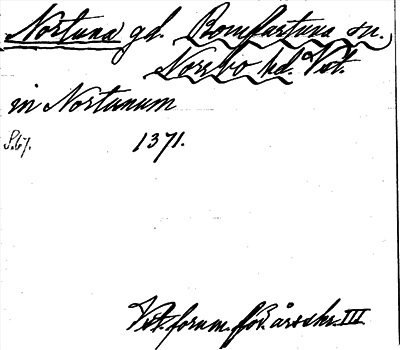 Nortuna gd. Romfartuna sn.
Norrbo hd. Vstm.
in Nortunum
S. 67. 1371.
Vstm. fornm. för. årsskr. III